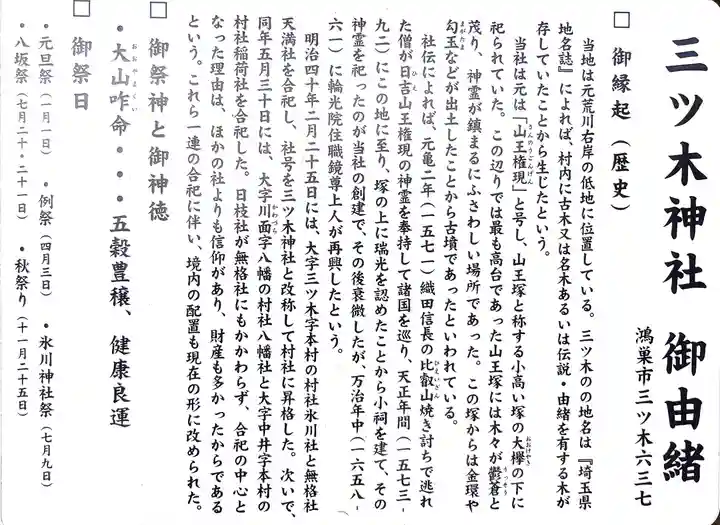 三ツ木神社 御由緒
鴻巣市三ツ木六三七
□ 御縁起（歴史）
当地は元荒川右岸の低地に位置している。三ツ木のの地名は『埼玉県
地名誌』によれば、村内に古木又は名木あるいは伝説・由緒を有する木が
存していたことから生じたという。
当社は元は「山王権現」と号し、山王塚と称する小高い塚の大欅の下に
祀られていた。この辺りでは最も高台であった山王塚には木々が鬱蒼と
茂り、神霊が鎮まるにふさわしい場所であった。この塚からは金環や
勾玉などが出土したことから古墳であったといわれている。
社伝によれば、元亀二年（一五七一）織田信長の比叡山焼き討ちで逃れ
た僧が日吉山王権現の神霊を奉持して諸国を巡り、天正年間（一五七三-
九二）にこの地に至り、塚の上に瑞光を認めたことから小祠を建て、その
神霊を祀ったのが当社の創建で、その後衰微したが、万治年中（一六五八-
六一）に輪光院住職鏡尊上人が再興したという。
明治四十年二月二十五日には、大字三ツ木字本村の村社氷川社と無格社
天満社を合祀し、社号を三ツ木神社と改称して村社に昇格した。次いで、
同年五月三十日には、大字川面字八幡の村社八幡社と大字中井字本村の
村社稲荷社を合祀した。日枝社が無格社にもかかわらず、合祀の中心と
なった理由は、ほかの社よりも信仰があり、財産も多かったからである
という。これら一連の合祀に伴い、境内の配置も現在の形に改められた。
□ 御祭神と御神徳
・大山咋命・・・五穀豊穣、健康良運
□ 御祭日
・元旦祭（一月一日） ・例祭（四月三日） ・氷川神社祭（七月九日）
・八坂祭（七月二十・二十一日） ・秋祭り（十一月二十五日）